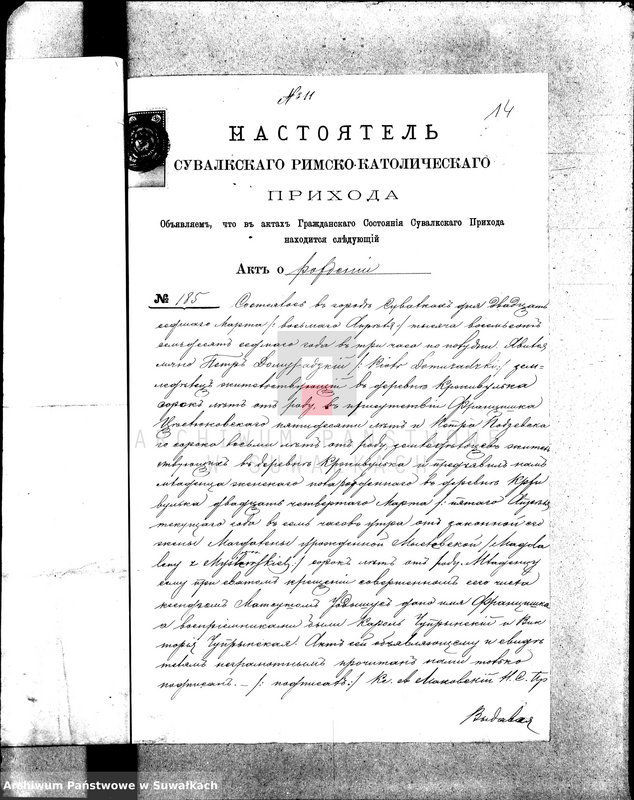 № 11
14
НАСТОЯТЕЛЬ
СУВАЛКСКАГО РИМСКО-КАТОЛИЧЕСКАГО
ПРИХОДА
Объявляемъ, что въ актахъ Гражданскаго Состоянія Сувалкскаго Прихода
находится слѣдующій
Актъ о рожденіи
№ 185 Состоялось въ городѣ Сувалкахъ дня двадцать
седьмаго Марта /: восьмаго Апрѣля :/ тысяча восемьсотъ
семьдесятъ седьмаго года въ три часа по полудни. Явился
лично Петръ /: Piotr :/ зем-
ледѣлецъ жительствующій въ деревнѣ Кршивулька
сорокъ лѣтъ отъ роду, въ присутствіи Францишка
пятидесяти лѣтъ и Петра
го сорока восьми лѣтъ отъ роду, земледѣльцевъ житель
ствующихъ въ деревнѣ Кршивулька и предъявилъ намъ
младенца женскаго пола рожденнаго въ деревнѣ Крши
вулька двадцать четвертаго Марта /: пятаго Апрѣля
текущаго года въ семь часовъ утра отъ законной его
жены Магдалены урожденной /: Magda
leny z :/ сорокъ лѣтъ отъ роду. Младенцу
сему при святомъ крещеніи совершенномъ сего числа
ксендзомъ дано имя Францишка
а воспріемниками были Кароль Чупрынскій и Вик
торія Чупрынская. Актъ сей объявляющему и свидѣ
телямъ неграмотнымъ прочитанъ нами только
подписанъ. – /: подписалъ :/ Кс. Маковскій Н. С. Пр
Archiwum Państwowe w Suwałkach